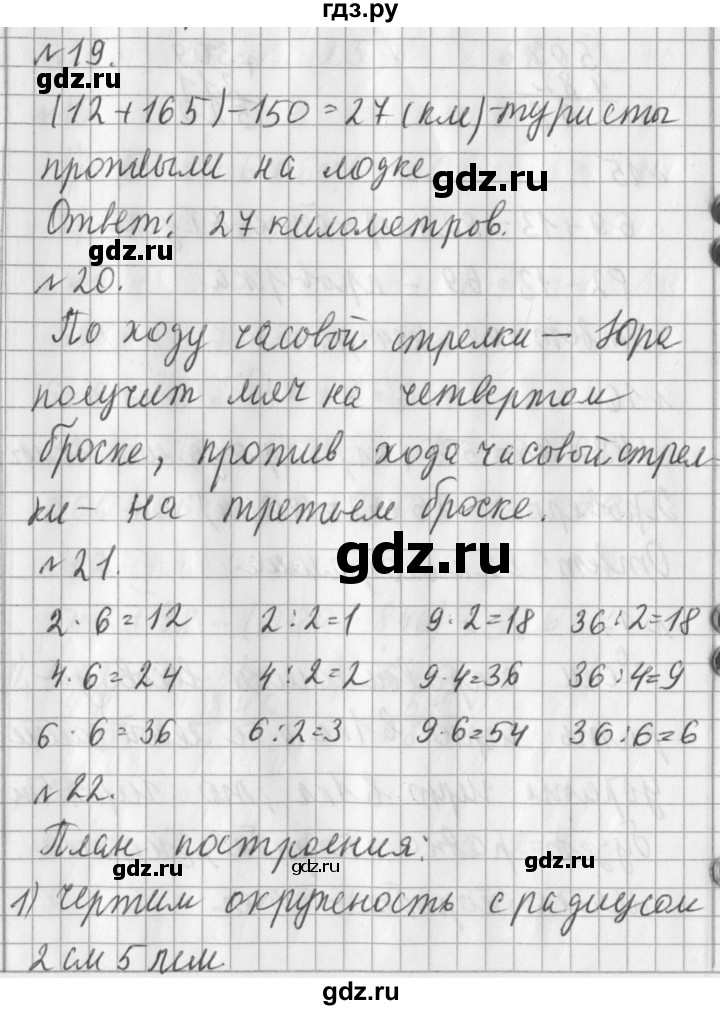 гдз.ру
№19.
gdz.ru
(12+165)-150=27(км)-туристы
проплыли на лодке
gdz.ru
Ответ: 27 километров.
gdz.ru
№20.
По ходу часовой стрелки - Юра
получит мяч на четвертом
броске, против хода часовой стрел-
ки - на третьем броске.
gdz.ru
№21.
2·6=12 2:2=1 9·2=18 36:2=18
4·6=24 4:2=2 9·4=36 36:4=9
6·6=36 6:2=3 9·6=54 36:6=6
№22.
План построения:
gdz.ru gdz.ru gdz.ru
1) Чертим окружность с радиусом
2 см 5 мм
gdz.ru
gdz.ru